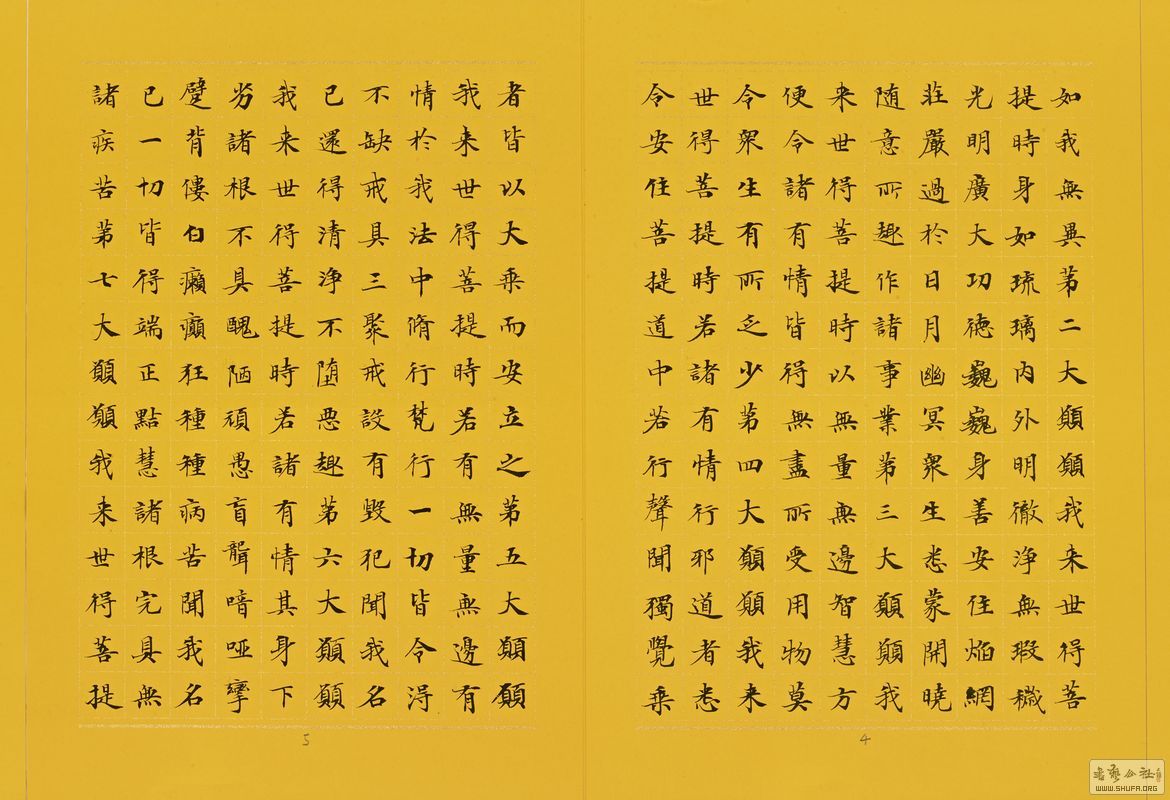 如我無異第二大願願我来世得菩
提時身如琉璃内外明徹淨無瑕穢
光明廣大功德巍巍身善安住焰網
莊嚴過於日月幽冥衆生悉蒙開曉
随意所趣作諸事業第三大願願我
来世得菩提時以無量無邊智慧方
便令諸有情皆得無盡所受用物莫
令衆生有所乏少第四大願願我来
世得菩提時若諸有情行邪道者悉
令安住菩提道中若行聲聞獨覺乘
4
者皆以大乘而安立之第五大願願
我来世得菩提時若有無量無邊有
情於我法中脩行梵行一切皆令得
不缺戒具三聚戒設有毀犯聞我名
已還得清淨不墮惡趣第六大願願
我来世得菩提時若諸有情其身下
劣諸根不具醜陋頑愚盲聾喑啞攣
躄背僂白癩癲狂種種病苦聞我名
已一切皆得端正點慧諸根完具無
諸疾苦第七大願願我来世得菩提
5
WWW.SHUFA.ORG